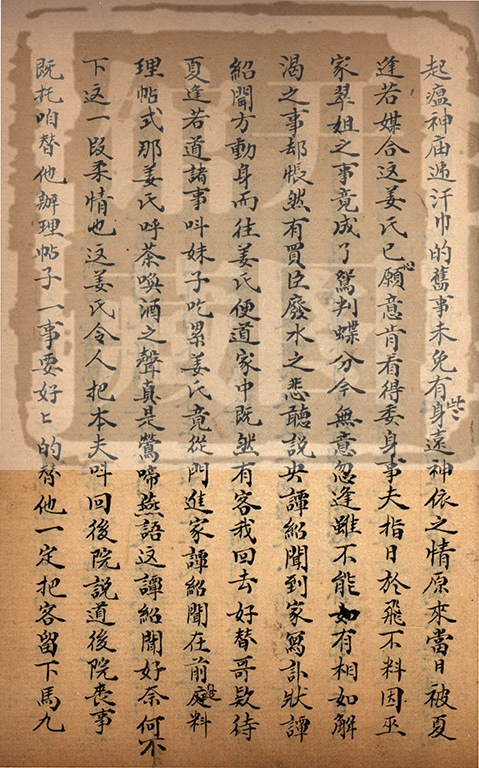 起瘟神庙遞汗巾的舊事未免有些身遠神依之情原來當日被夏
逢若媒合這姜氏已願心意肯看得委身事夫指日於飛不料因巫
家翠姐之事竟成了鴛判蝶分今無意忽逢雖不能如有相如解
渴之事却悵然有買臣廢水之悲聽説央譚紹聞到家寫訃狀譚
紹聞方動身而往姜氏便道家中既然有客我回去好替哥欵待
夏逢若道諸事呌妹子吃累姜氏竟從門進家譚紹聞在前庭料
理帖式那姜氏呼茶喚酒之聲真是鶯啼燕語這譚紹聞好奈何不
下這一段柔情也這姜氏令人把本夫呌回後院説道後院喪事
既托咱替他辦理帖子一事要好上的替他一定把客留下馬九